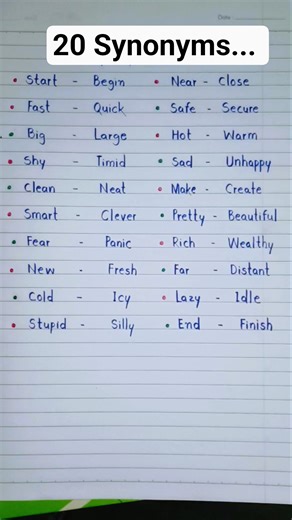 Date
20 Synonyms...
• Start - Begin • Near - Close
• Fast - Quick • Safe - Secure
• Big - Large • Hot - Warm
• Shy - Timid • Sad - Unhappy
• Clean - Neat • Make - Create
• Smart - Clever • Pretty - Beautiful
• Fear - Panic • Rich - Wealthy
• New - Fresh • Far - Distant
• Cold - Icy • Lazy - Idle
• Stupid - Silly • End - Finish